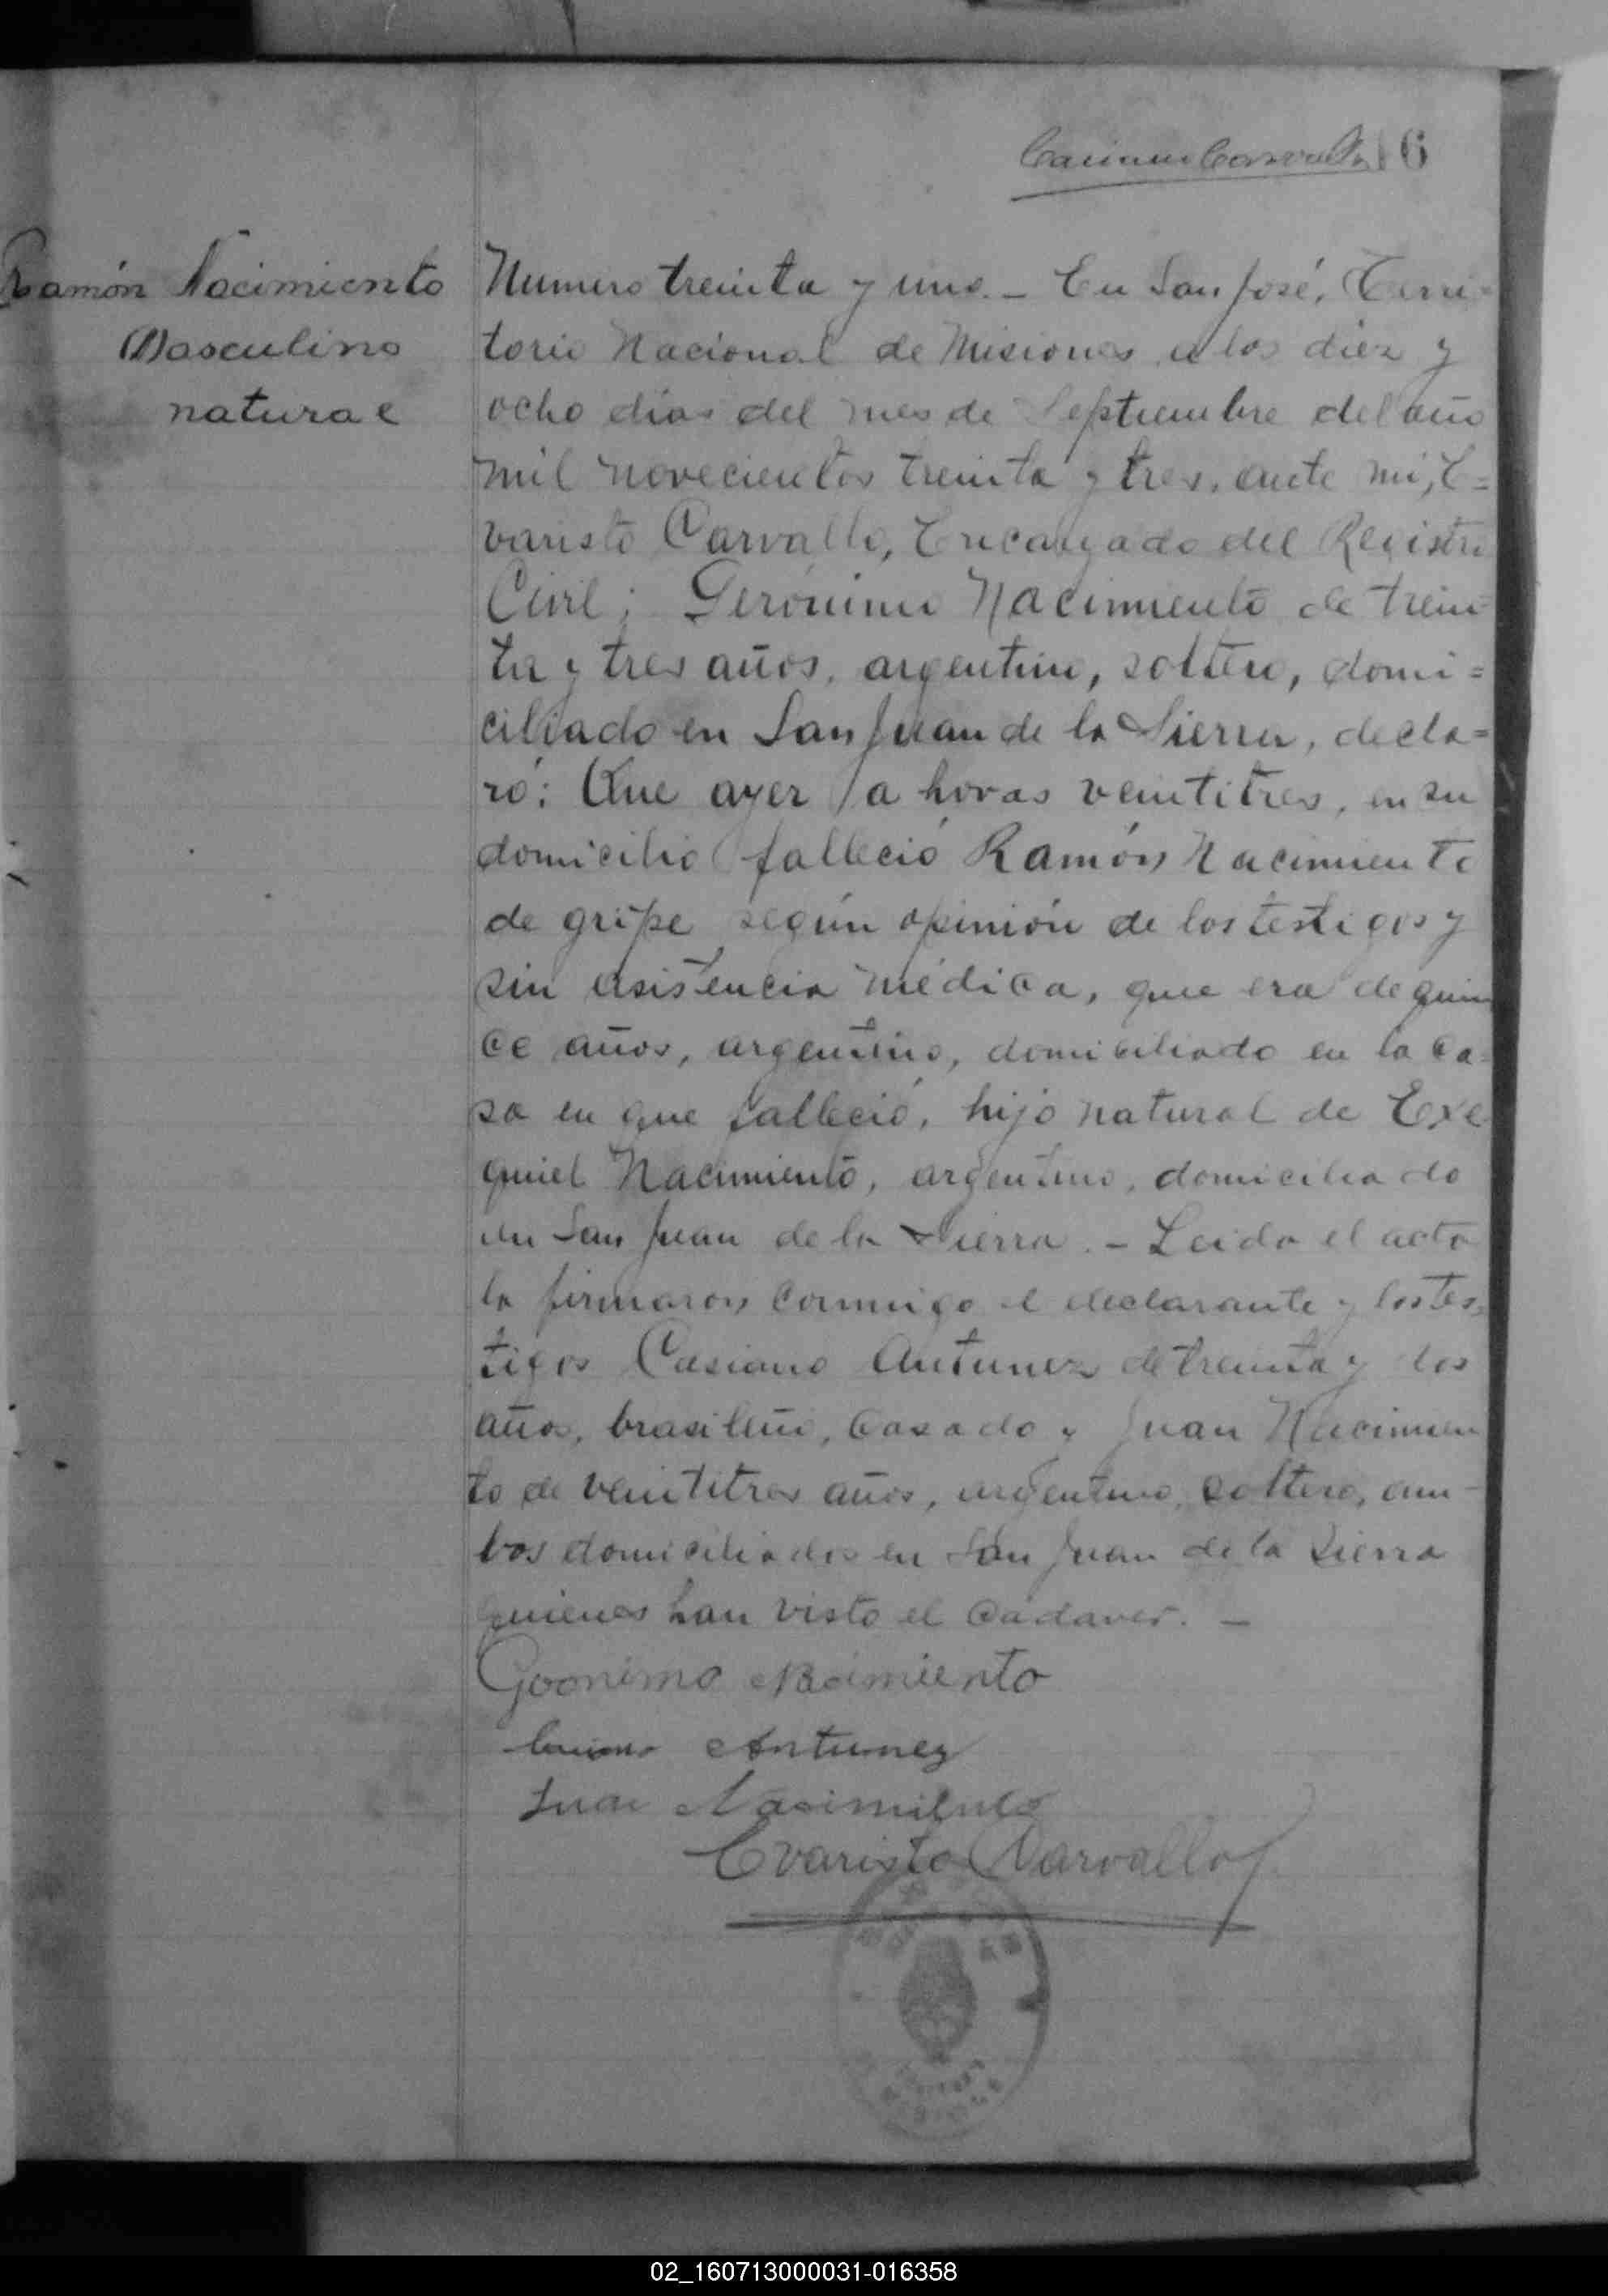 16
Ramón Nacimiento
Masculino
natural
Numero treinta y uno. - En San José, Terri=
torio Nacional de Misiones a los diez y
ocho días del mes de Septiembre del año
mil novecientos treinta y tres, ante mi, E=
varisto Carvallo, Encargado del Registro
Civil; Gerónimo Nacimiento de trein=
ta y tres años, argentino, soltero, domi=
ciliado en San Juan de la Sierra, decla=
ró: Que ayer a horas veintitres, en su
domicilio falleció Ramón Nacimiento
de gripe según opinión de los testigos y
sin asistencia médica, que era de quin
ce años, argentino, domiciliado en la ca=
sa en que falleció, hijo natural de Exe
quiel Nacimiento, argentino, domiciliado
en San Juan de la Sierra. - Leida el acta
la firmaron conmigo el declarante y los tes=
tigos Casiano Antunez de treinta y dos
años, brasileño, casado y Juan Nacimien
to de veintitres años, argentino, soltero, am-
bos domiciliados en San Juan de la Sierra
quienes han visto el cadaver. -
Goonimo Nacimiento
Antunez
Juan Nacimiento
Evaristo Carvallo
02_160713000031-016358